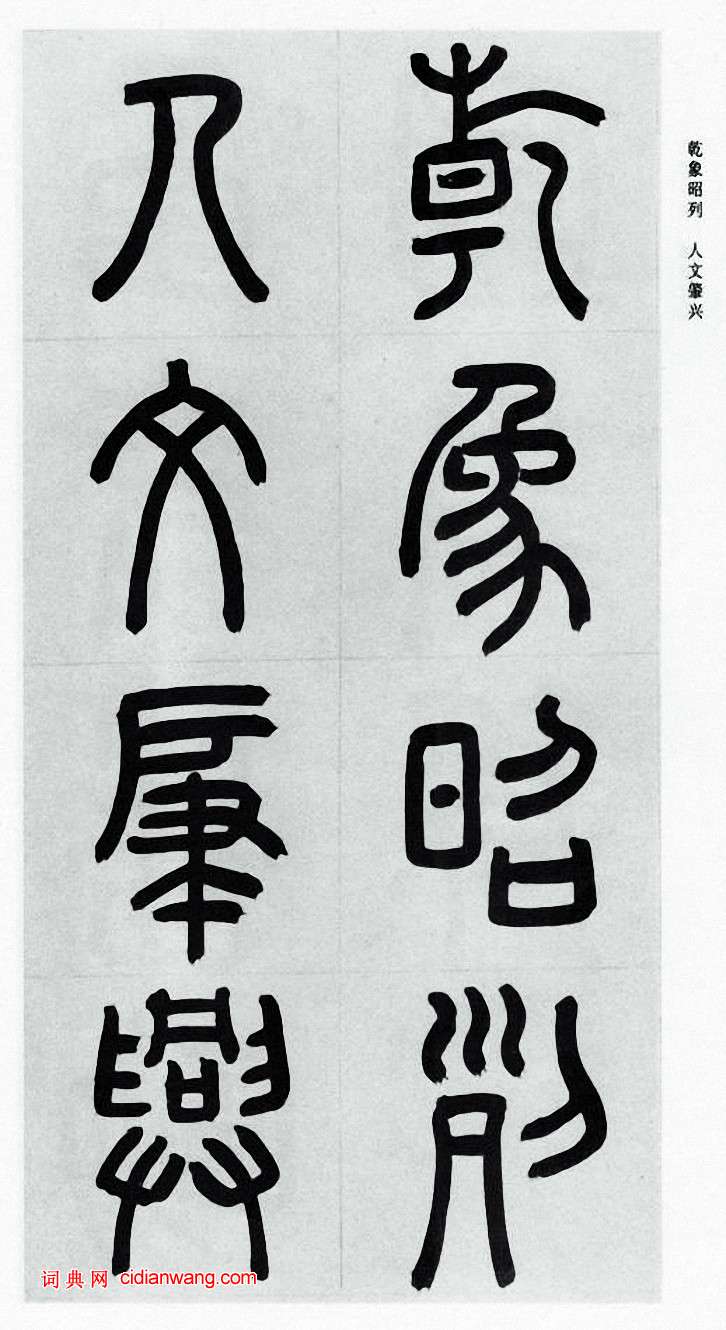 乾象昭列 人文肇兴
乾象昭列
人文肇興
词典网 cidianwang.com